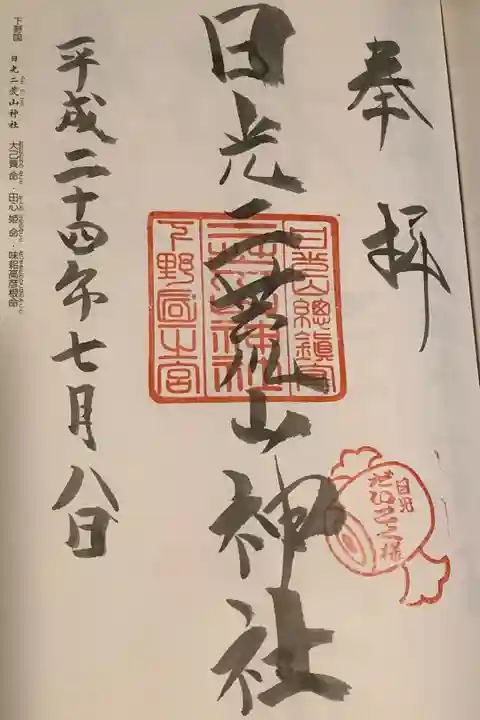 奉拝
日光二荒山神社
平成二十四年七月八日
日光山總鎮守
二荒山神社
下野國一之宮
日光
だいこく様
下野国 日光二荒山神社 大己貴命・田心姫命・味耜高彦根命